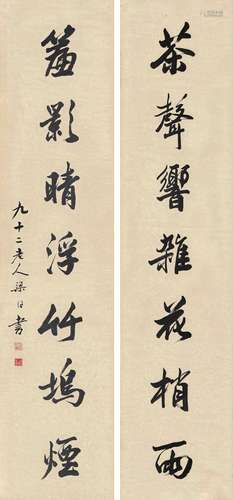 茶聲響雜花梢雨
簾影晴浮竹塢煙
九十二老人梁同書